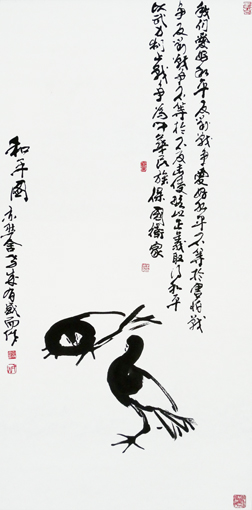 我们爱好和平反对战争爱好和平不等于害怕战
争反对战争不等于不反击侵略以正义取得和平
以武力制止战争为中华民族保国卫家
和平图
有感而作